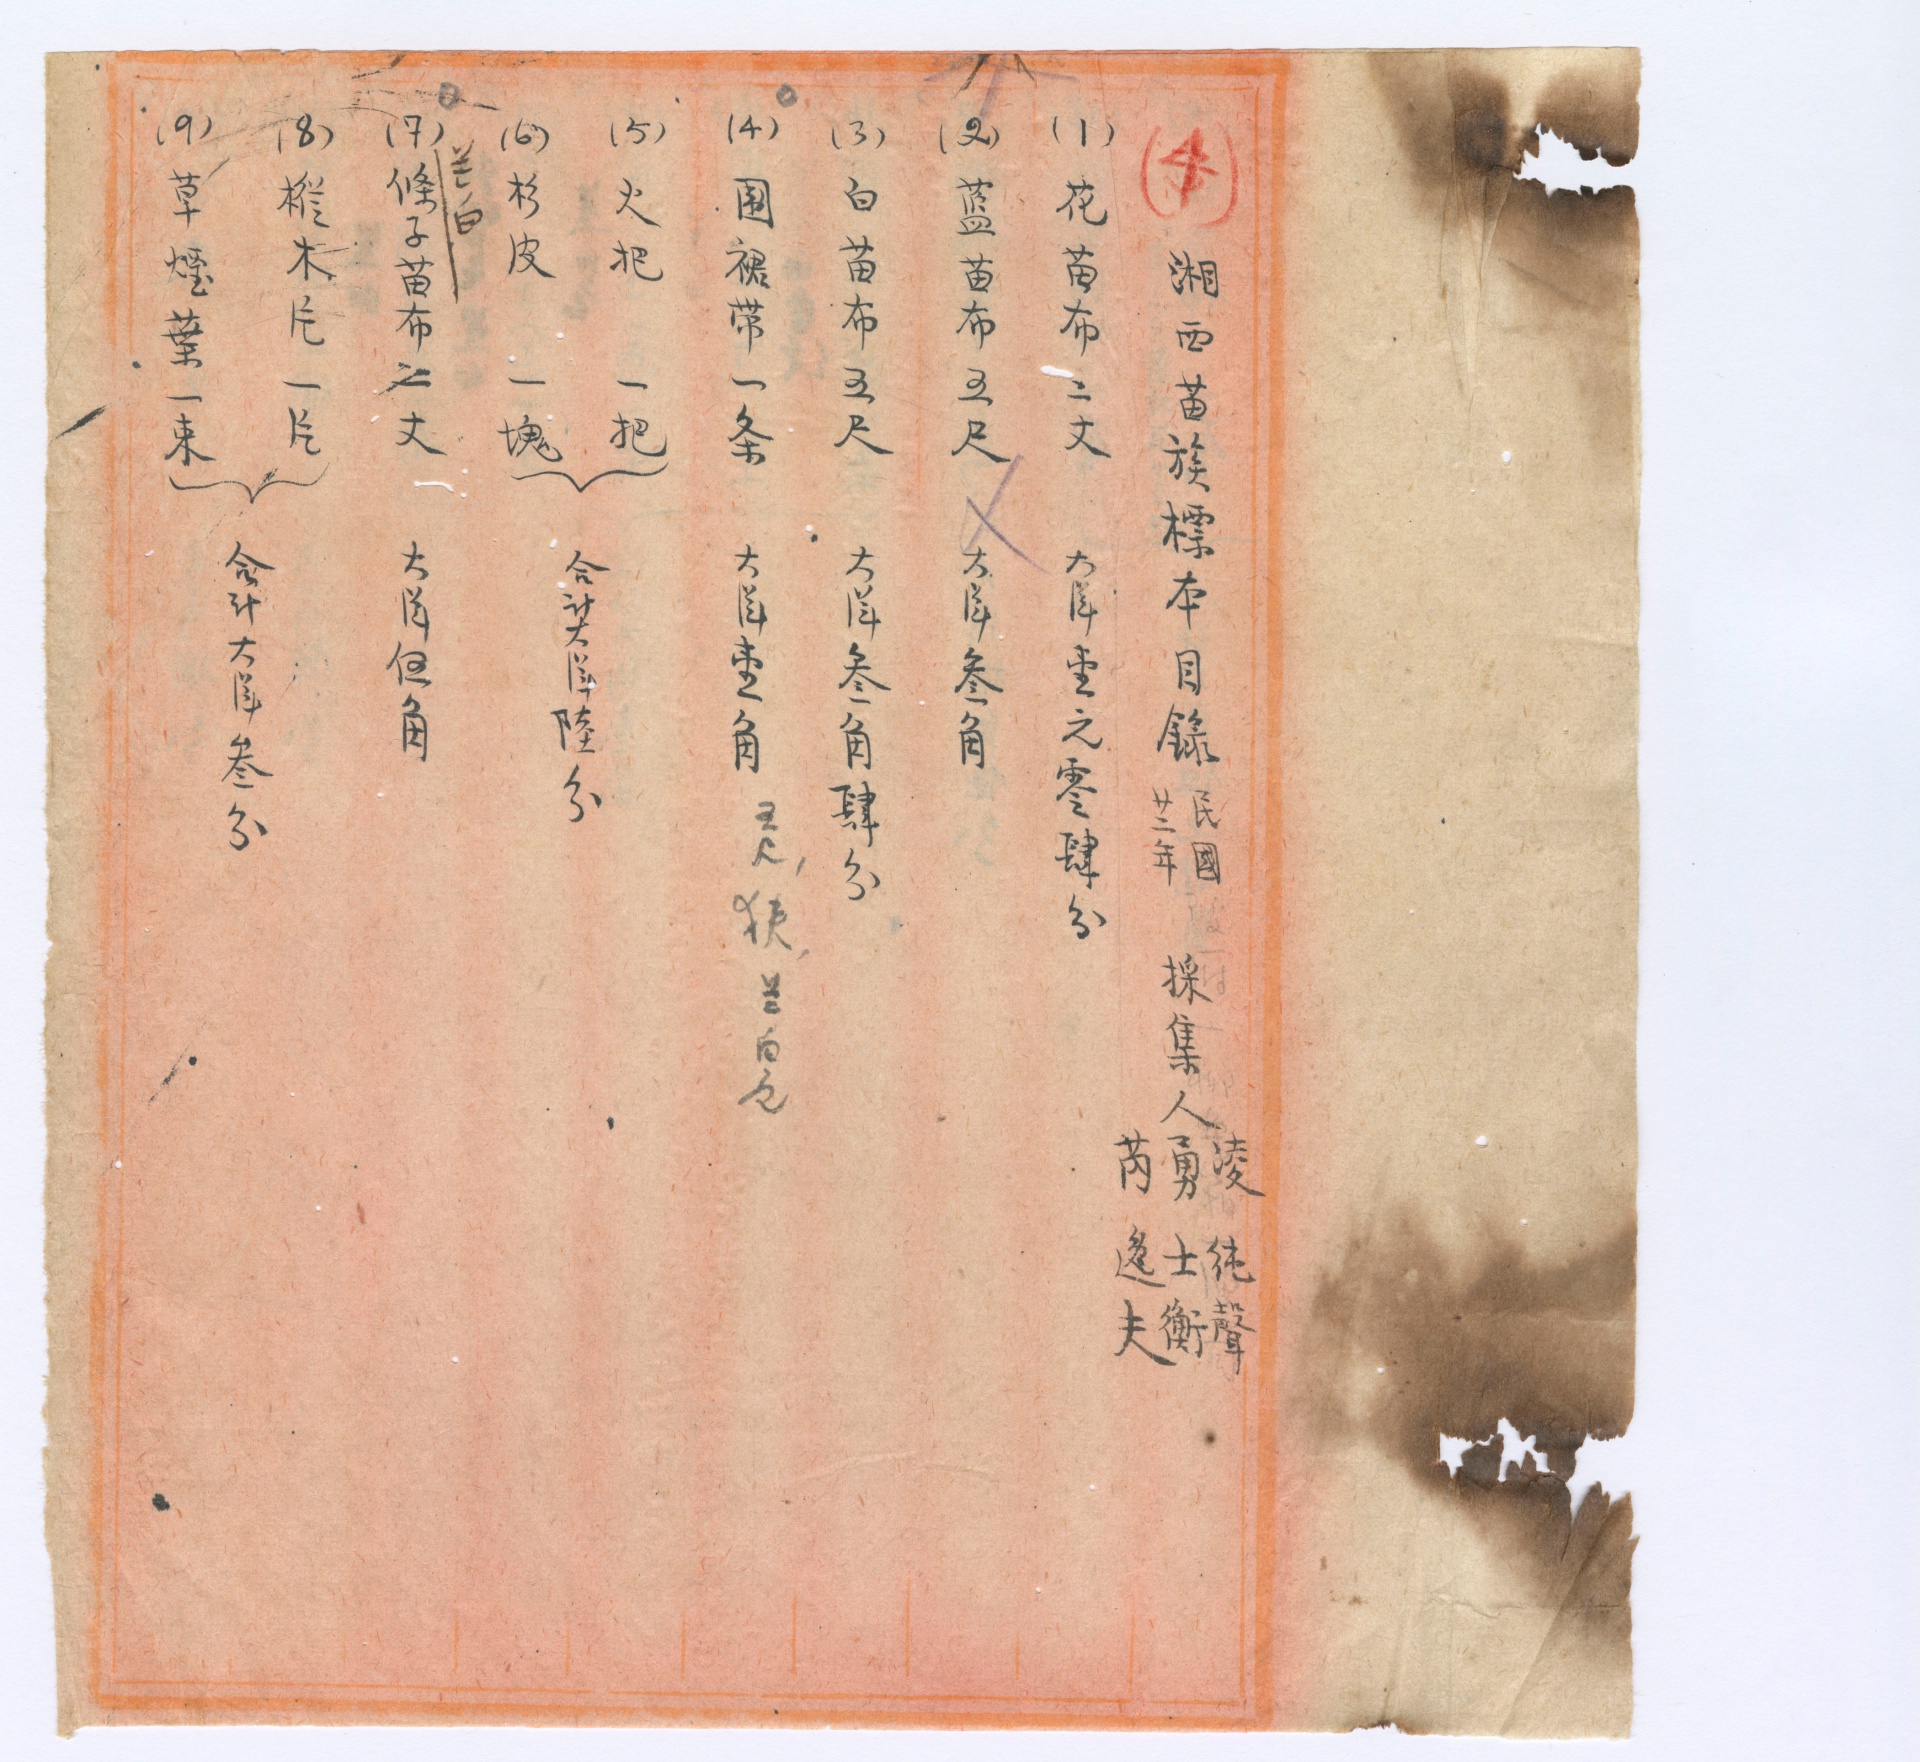 (4)
湘西苗族標本目錄 民國廿二年 採集人 凌純聲 勇士衡 芮逸夫
(1) 花苗布二丈 大洋壹元零肆分
(2) 藍苗布五尺 大洋叁角
(3) 白苗布五尺 大洋叁角肆分
(4) 圍裙帶一条 大洋壹角 五尺,狹,兰白色
(5) 火把 一把
(6) 杉皮 一塊
合計大洋陸分
兰白
(7) 條子苗布二丈 大洋伍角
(8) 樅木片一片
(9) 草煙葉一束
合計大洋叁分